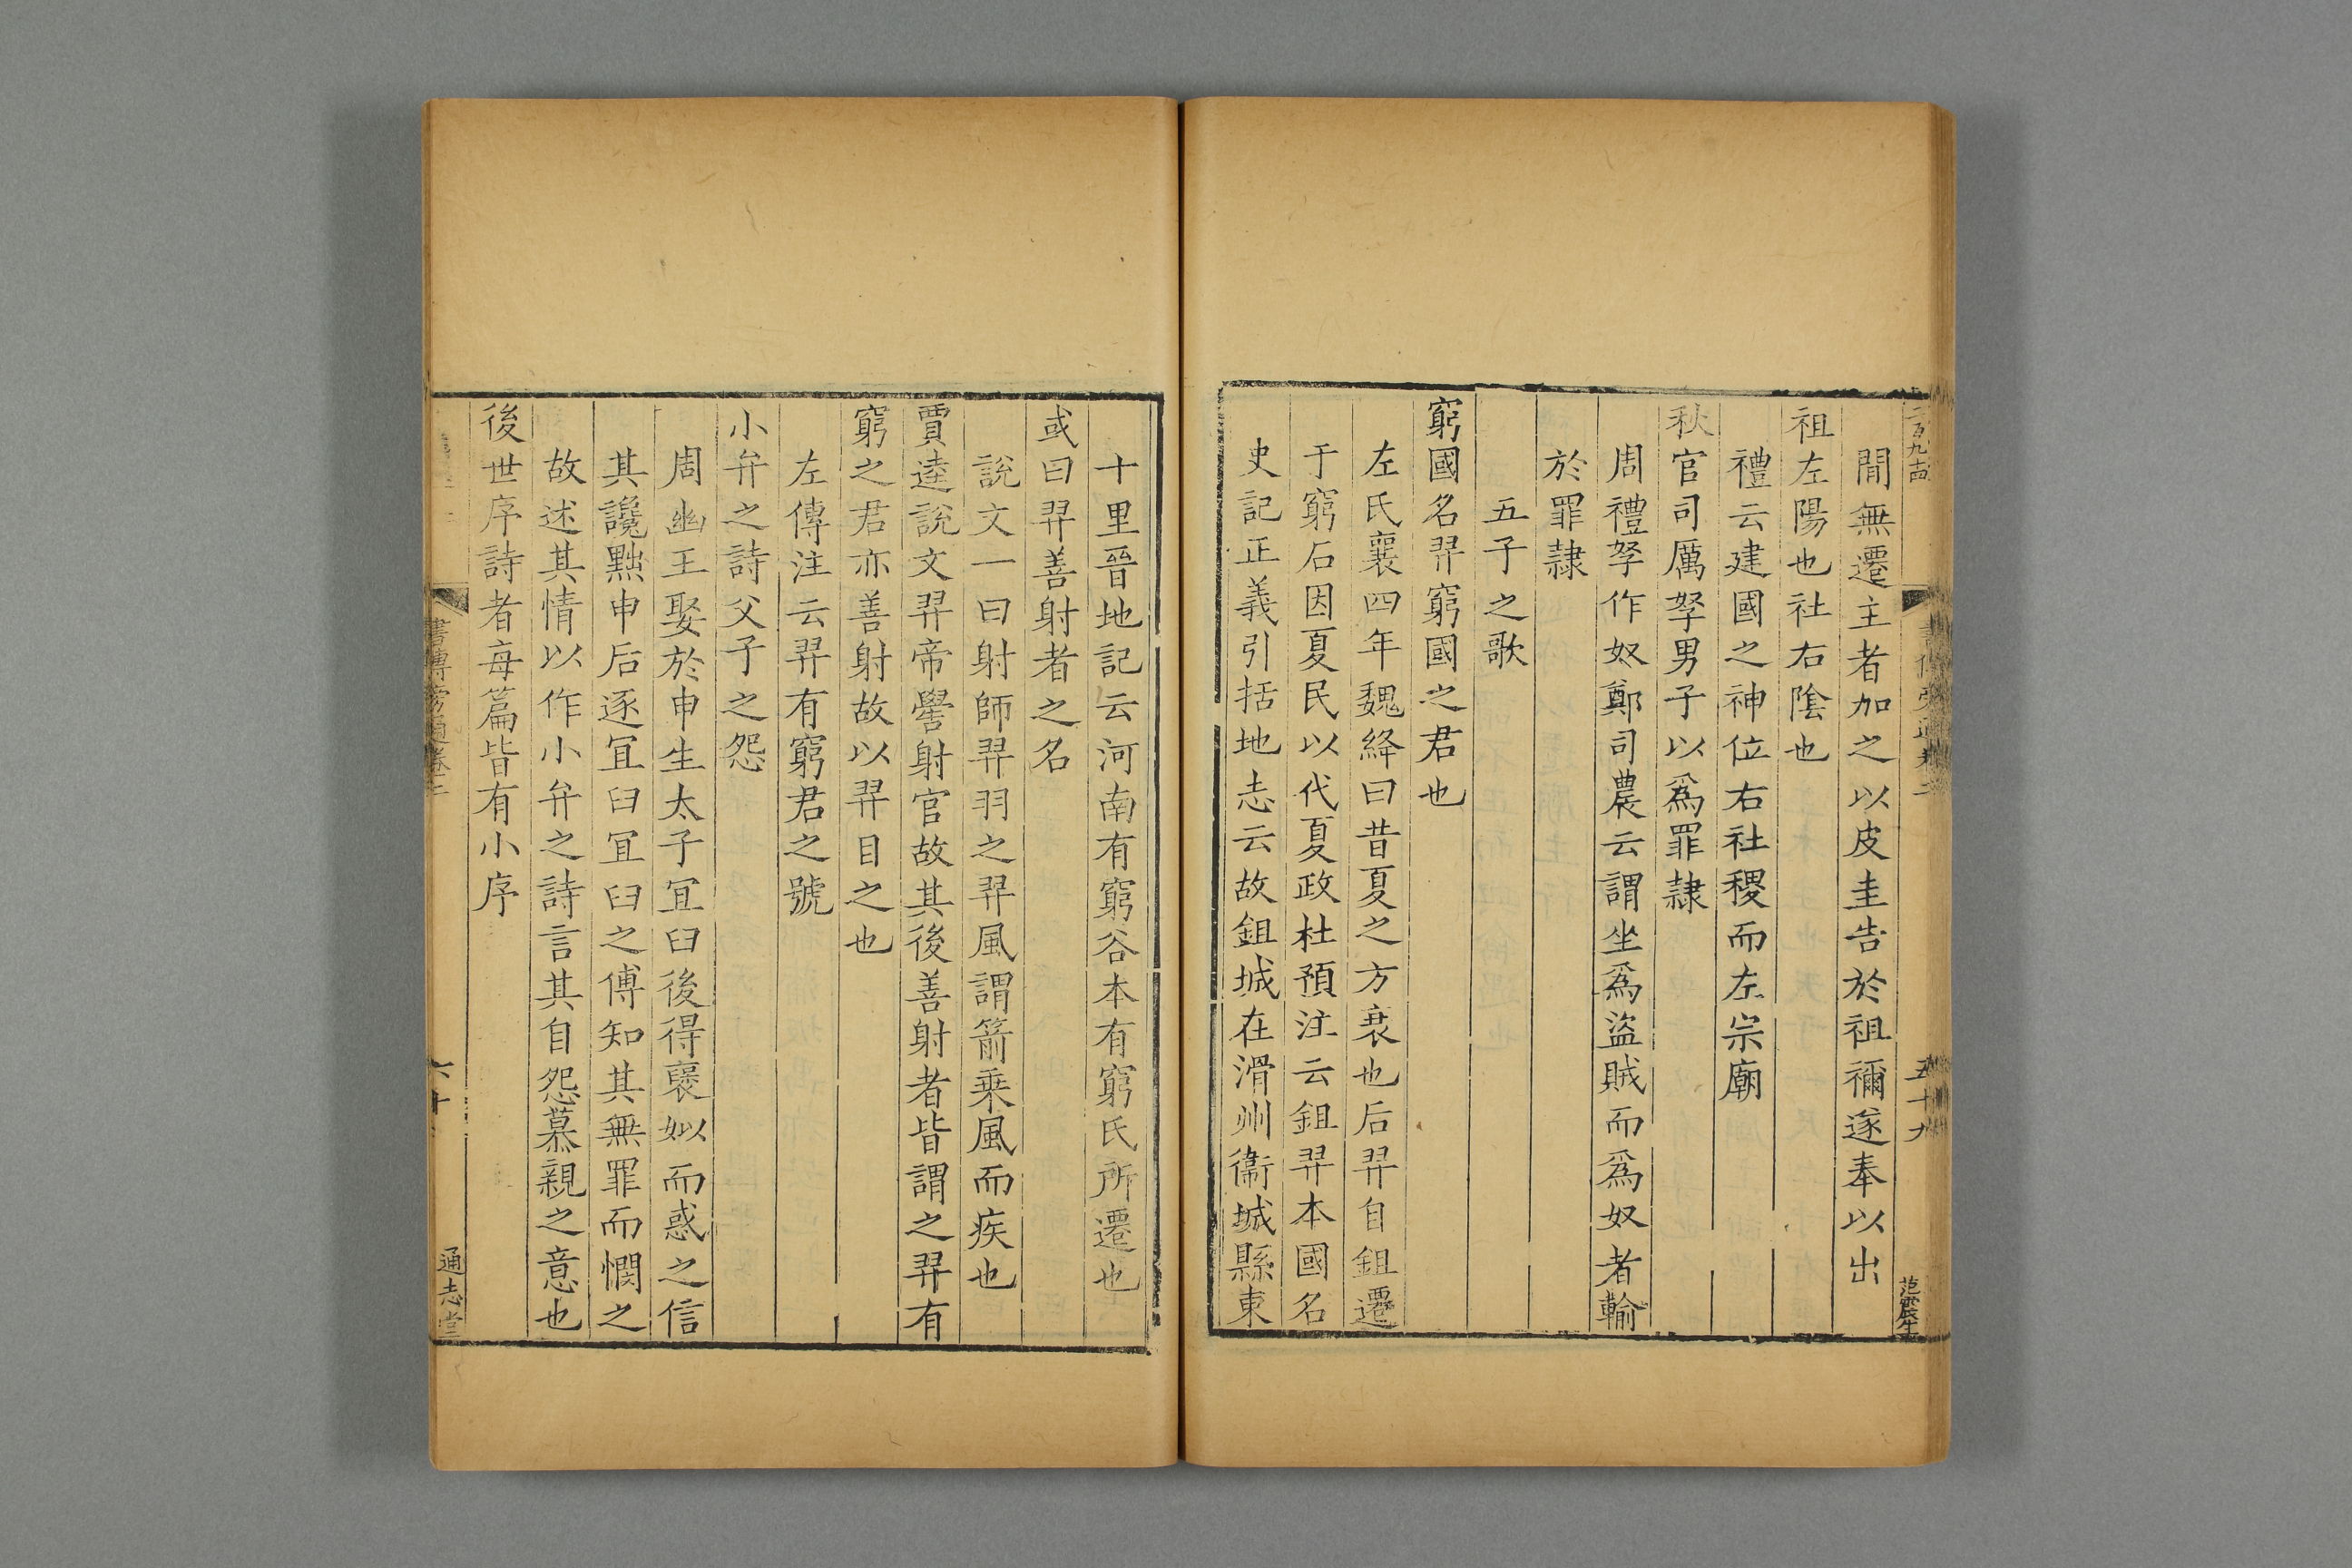 二百九十四
書傳旁通卷二
五十九
范震生
閒無遷主者加之以皮圭告於祖禰遂奉以出
祖左陽也社右陰也
禮云建國之神位右社稷而左宗廟
秋官司厲孥男子以爲罪隷
周禮孥作奴鄭司農云謂坐爲盜賊而爲奴者輸
於罪隷
五子之歌
窮國名羿窮國之君也
左氏襄四年魏絳曰昔夏之方衰也后羿自鉏遷
于窮石因夏民以代夏政杜預注云鉏羿本國名
史記正義引括地志云故鉏城在滑州衞城縣東
十里晉地記云河南有窮谷本有窮氏所遷也
或曰羿善射者之名
說文一曰射師羿羽之羿風謂箭乗風而疾也
賈逵說文羿帝嚳射官故其後善射者皆謂之羿有
窮之君亦善射故以羿目之也
左傳注云羿有窮君之號
小弁之詩父子之怨
周幽王娶於申生太子冝臼後得襃姒而惑之信
其讒黜申后逐冝臼冝臼之傅知其無罪而憫之
故述其情以作小弁之詩言其自怨慕親之意也
後世序詩者每篇皆有小序
書傳旁通卷二
六十
通志堂